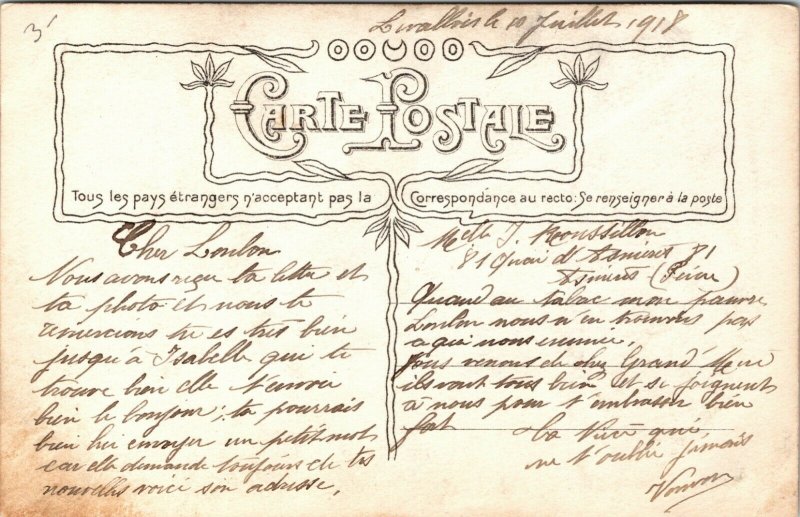 3'
Levallois le 10 Juillet 1918
CARTE POSTALE
Tous les pays étrangers n'acceptant pas la Correspondance au recto: Se renseigner à la poste
Cher Loulou
Nous avons reçu ta lettre et
ta photo et nous te
remercions tu es très bien
jusqu à Isabelle qui te
trouve bien elle t'envoi
bien le bonjour; tu pourrais
bien lui envoyer un petit mot
car elle demande toujours de tes
nouvelles voici son adresse.
Melle J. Roussillon
81 Quai d'Asnières 81
Asnières (Seine)
Quand au tabac mon pauvre
Loulou nous n'en trouvons pas
a qui nous ennuie.
Nous venons de chez Grand' Mere
ils vont tous bien et se joignent
à nous pour t'embrasser bien
fort
Ta Nièce qui
ne t'oublie jamais